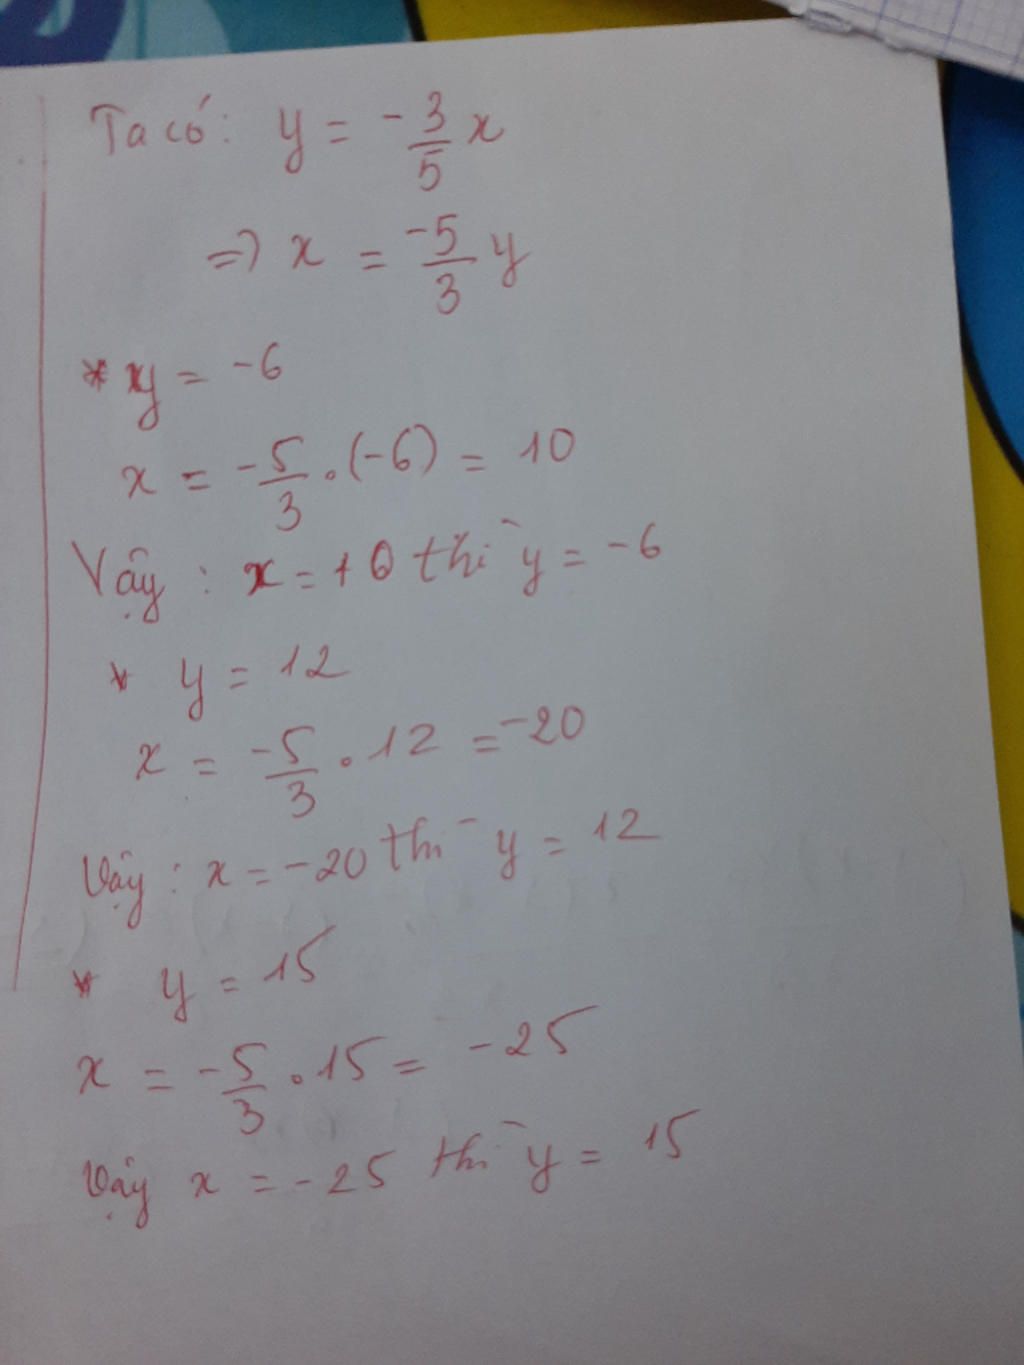 Ta có: y = -3/5 x
=> x = -5/3 y
* y = -6
x = -5/3 . (-6) = 10
Vậy : x = 10 thì y = -6
* y = 12
x = -5/3 . 12 = -20
Vậy : x = -20 thì y = 12
* y = 15
x = -5/3 . 15 = -25
Vậy x = -25 thì y = 15